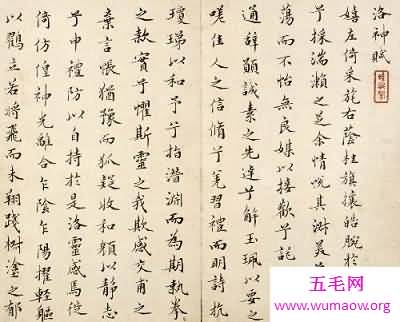 洛神賦
嬉左倚采旄右蔭桂旗攘皓腕於
兮採湍瀨之芝余情悅其淑美
蕩而不怡無良媒以接歡兮託
通辭願誠素之先達兮解玉珮以要之
嗟佳人之信脩兮羌習禮而明詩抗
瓊珶以和予兮指潛淵而為期執拳
之款實兮懼斯靈之我欺感交甫之
棄言悵猶豫而狐疑收和顏以靜志
兮申禮防以自持於是洛靈感焉徙
倚彷徨神光離合乍陰乍陽擢輕軀
以鶴立若將飛而未翔踐椒塗之郁
五毛网
www.wumaow.org